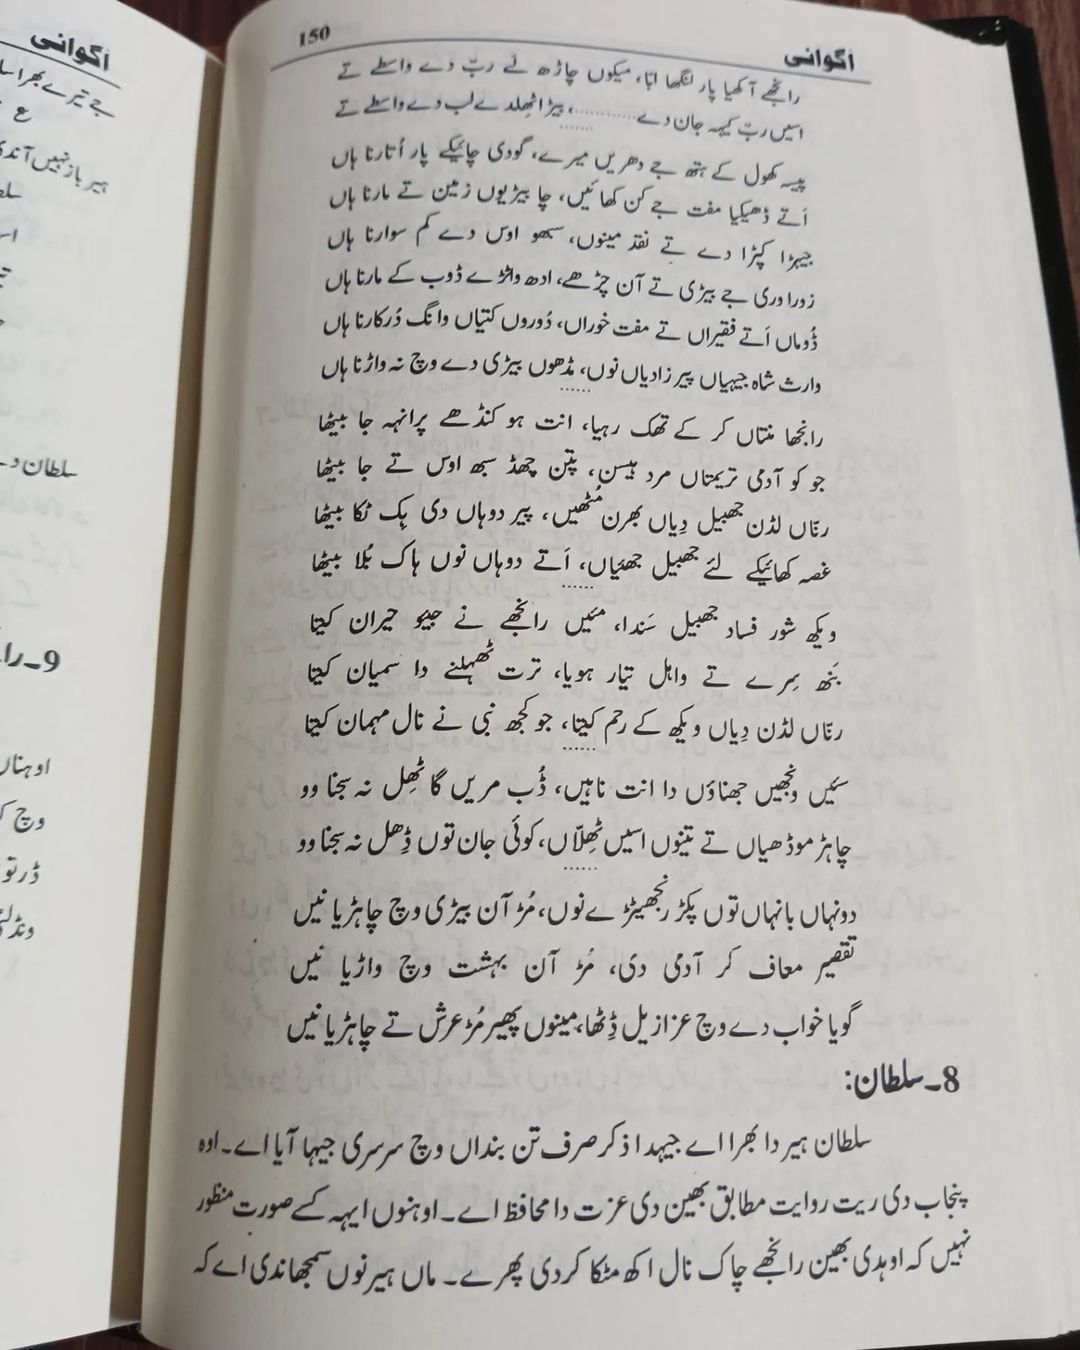 اگوانی
150
رانجھے آکھیا پار لنگھا اپا، میکوں چاڑھ لے ربّ دے واسطے تے
اسیں ربّ کیہہ جان دے............، بیڑا ٹھلدے لب دے واسطے تے
پیسہ کھول کے ہتھ جے دھریں میرے، گودی چائیکے پار اُتارنا ہاں
اَتے ڈھیکیا مفت جے کن کھائیں، چا بیڑیوں زمین تے مارنا ہاں
جیہڑا کپڑا دے تے نقد مینوں، سبھو اوس دے کم سوارنا ہاں
زورا وری جے بیڑی تے آن چڑھے، ادھ واٹڑے ڈوب کے مارنا ہاں
ڈُوماں اَتے فقیراں تے مفت خوراں، دُوروں کتیاں وانگ دُرکارنا ہاں
وارث شاہ جیہیاں پیر زادیاں نوں، مڈھوں بیڑی دے وچ نہ واڑنا ہاں
......
رانجھا منتاں کر کے تھک رہیا، انت ہو کنڈھے پرانہہ جا بیٹھا
جو کو آدمی تریمتاں مرد ہیسن، پتن چھڈ سبھ اوس تے جا بیٹھا
رنّاں لڈن جھبیل دِیاں بھرن مُٹھیں، پیر دوہاں دی ہِک ٹکا بیٹھا
غصہ کھائیکے لئے جھبیل جھئیاں، اَتے دوہاں نوں ہاک بُلا بیٹھا
......
ویکھ شور فساد جھبیل سَندا، مئیں رانجھے نے جیئو حیران کیتا
بَنھ سِرے تے واہل تیار ہویا، ترت ٹھہلنے دا سمیان کیتا
رنّاں لڈن دِیاں ویکھ کے رحم کیتا، جو کجھ نبی نے نال مہمان کیتا
......
سَئیں ونجھیں جھناؤں دا انت ناہیں، ڈُب مریں گا ٹھِل نہ سجنا وو
چاہڑ موڈھیاں تے تینوں اسیں ٹھِلّاں، کوئی جان توں ڈِھل نہ سجنا وو
......
دونہاں بانہاں توں پکڑ رنجھیٹڑے نوں، مُڑ آن بیڑی وچ چاہڑیا نیں
تقصیر معاف کر آدمی دی، مُڑ آن بہشت وچ واڑیا نیں
گویا خواب دے وچ عزازیل ڈِٹھا، مینوں پھیر مُڑ عرش تے چاہڑیا نیں
8۔سلطان:
سلطان ہیر دا بھرا اے جیہدا ذکر صرف تن بنداں وچ سرسری جیہا آیا اے۔ اوہ
پنجاب دی ریت روایت مطابق بھین دی عزت دا محافظ اے۔ اوہنوں ایہہ کسے صورت منظور
نہیں کہ اوہدی بھین رانجھے چاک نال اکھ مٹکا کردی پھرے۔ ماں ہیر نوں سمجھاندی اے کہ
اگوانی
جے تیرے بھرا
ہیر باز نہیں آندی
سلطان د
اوہناں
وچ
ڈر تو